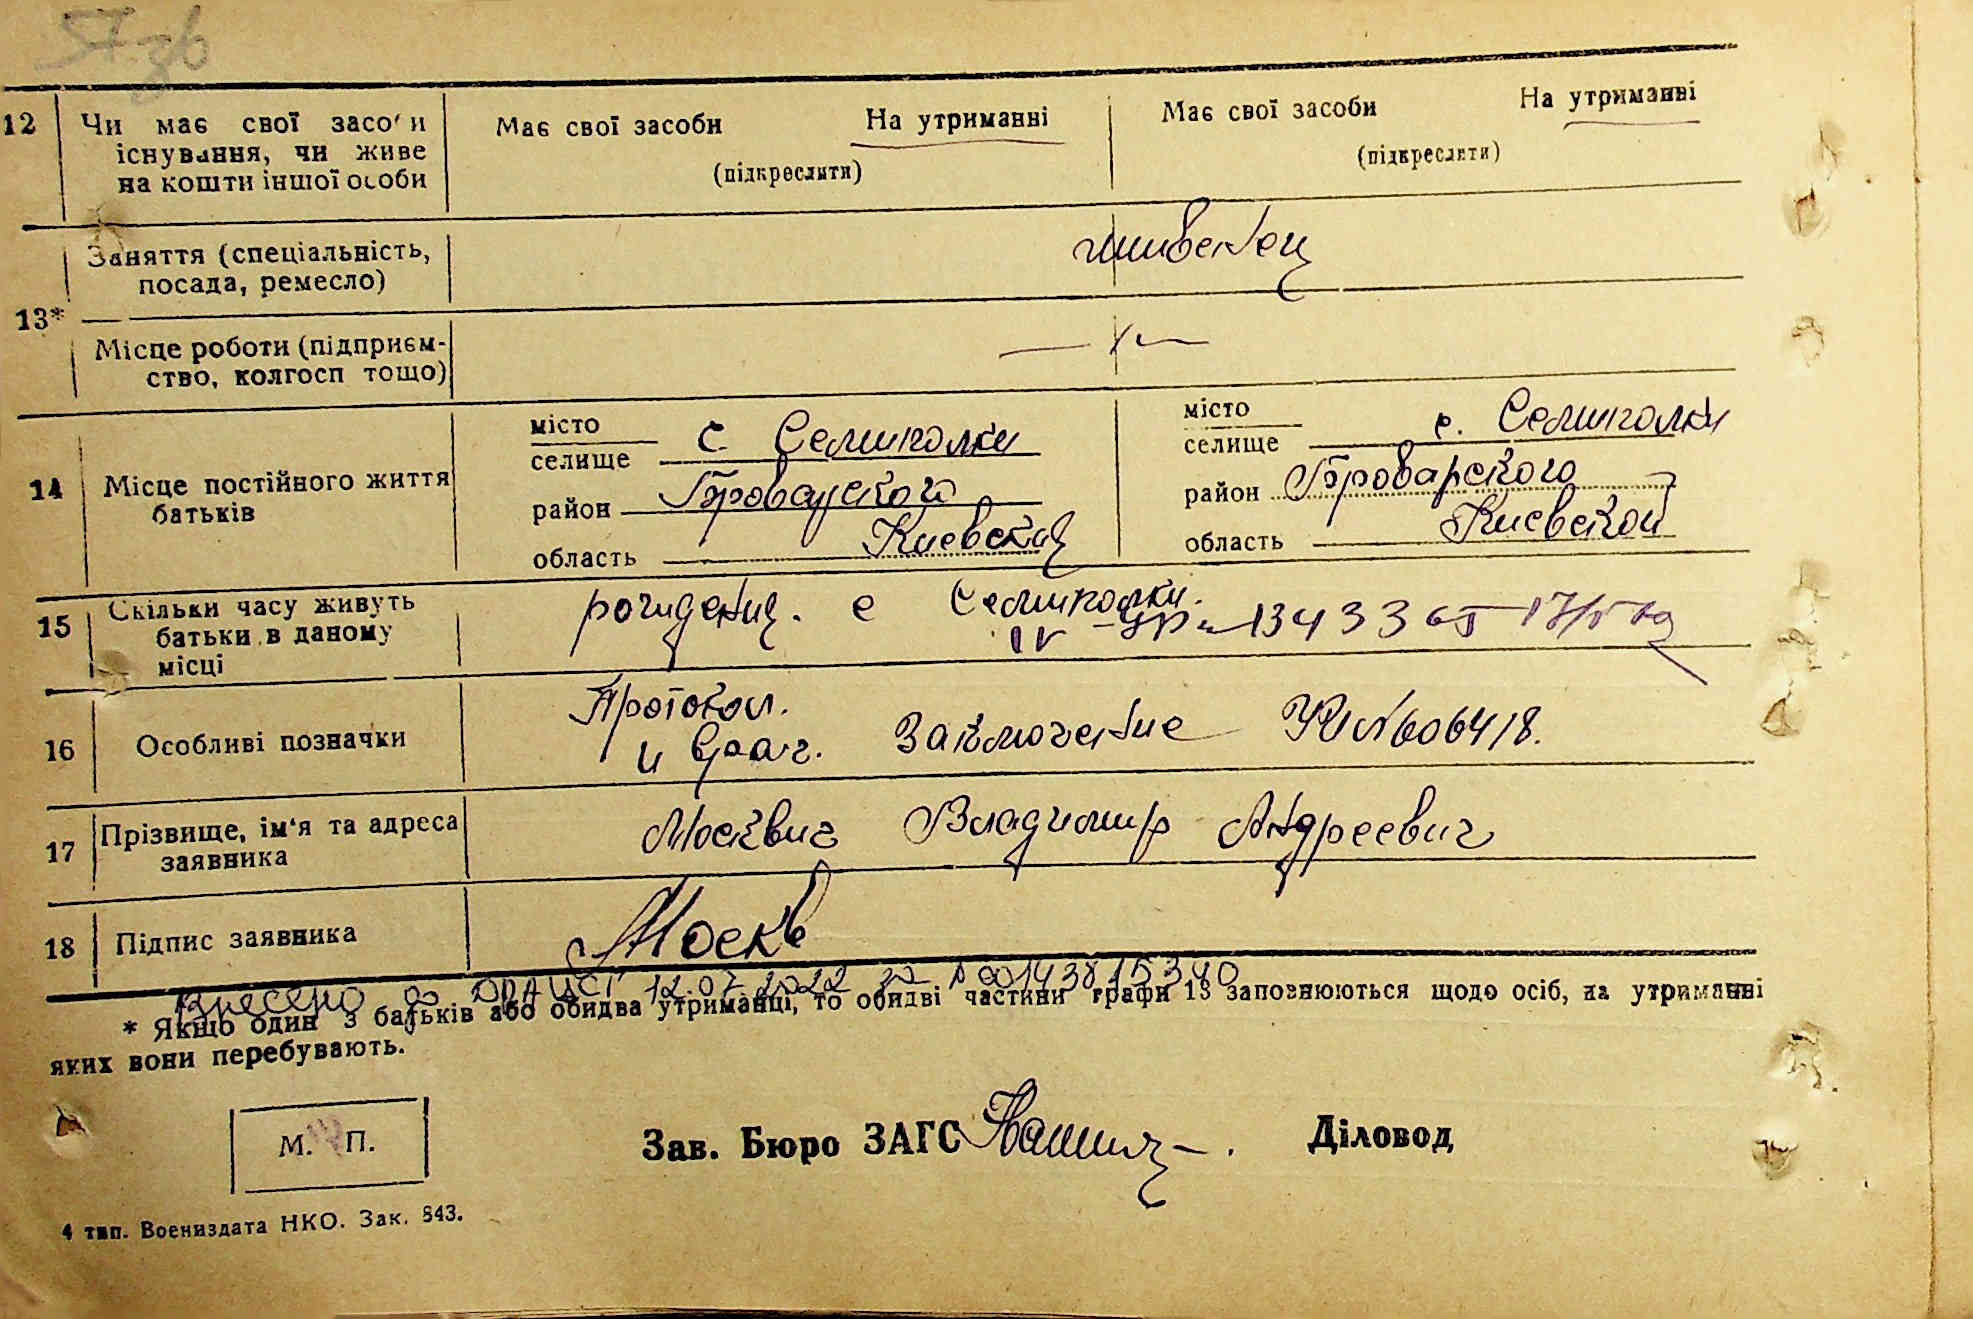 57 зв
12 Чи має свої засоби Має свої засоби На утриманні Має свої засоби На утриманні
існування, чи живе (підкреслити) (підкреслити)
на кошти іншої особи
Заняття (спеціальність,
посада, ремесло)
13*
Місце роботи (підприєм-
ство, колгосп тощо)
14 Місце постійного життя
батьків
місто
селище с. Семиполки
район Броварского
область Киевской
місто
селище с. Семиполки
район Броварского
область Киевской
15 Скільки часу живуть
батьки в даному
місці
с Семиполки.
IV 13433 от
16 Особливі позначки
Протокол.
и врач. Заключение № 606418.
17 Прізвище, ім'я та адреса
заявника
Москвич Владимир Андреевич
18 Підпис заявника
Москв
Внесено до ДРАЦСГ 12.07.2022 за № 00143815340
* Якщо один з батьків або обидва утриманці, то обидві частини графи 13 заповнюються щодо осіб, на утриманні
яких вони перебувають.
М. П.
Зав. Бюро ЗАГС Діловод
4 тип. Воениздата НКО. Зак. 843.